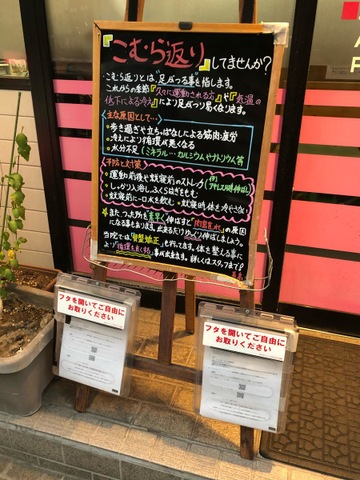 『こむら返り』してませんか？
こむら返りとは、"足がつる事"を指します。
これからの季節『久々に運動される方』や『気温の
低下による冷え』により足がつり易くなります。
主な原因として…
・歩き過ぎや立ちっぱなしによる筋肉疲労
・冷えにより循環が悪くなる
・水分不足(ミネラル…カルシウムやナトリウム等)
予防と対策
・運動前後や就寝前のストレッチ
・しっかり入浴し、ふくらはぎをもむ
・就寝前に一口水を飲む ・就寝時体を冷やさない
またつった所を素早く伸ばすと
の原因
になる事もあります。出来るだけゆっくり伸ばしましょう。
当院では、"骨盤矯正"も行ってます。体を整える事に
より"循環も良くする"事が出来ます。詳しくはスタッフまで
フタを開いてご自由に
お取りください
フタを開いてご自由に
お取りください